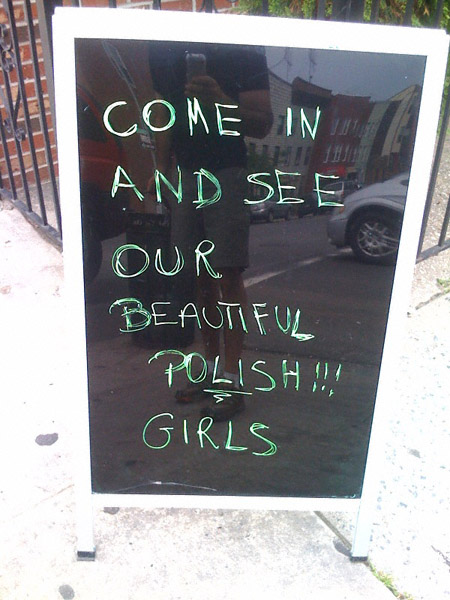 COME IN
AND SEE
OUR
BEAUTIFUL
POLISH!!!
GIRLS